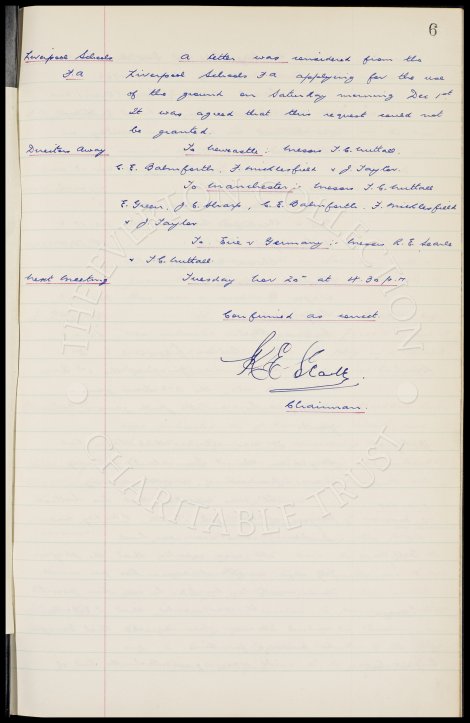 6
Liverpool Schools F.A
A letter was considered from the
Liverpool Schools F A applying for the use
of the ground on Saturday morning Dec 1st.
It was agreed that this request could not
be granted.
Directors Away
To Newcastle :- Messrs T. C. Nuttall,
C. E. Balmforth, F. Micklesfield & J. Taylor.
To Manchester :- Messrs T. C. Nuttall
E. Green, J. C. Sharp, C. E. Balmforth, F. Micklesfield
& J. Taylor
To Eire & Germany :- Messrs R. E. Searle
& T. C. Nuttall.
Next Meeting
Tuesday Nov 20th at 4.30 p.m.
Confirmed as correct
Chairman.
THE EVERTON COLLECTION
CHARITABLE TRUST